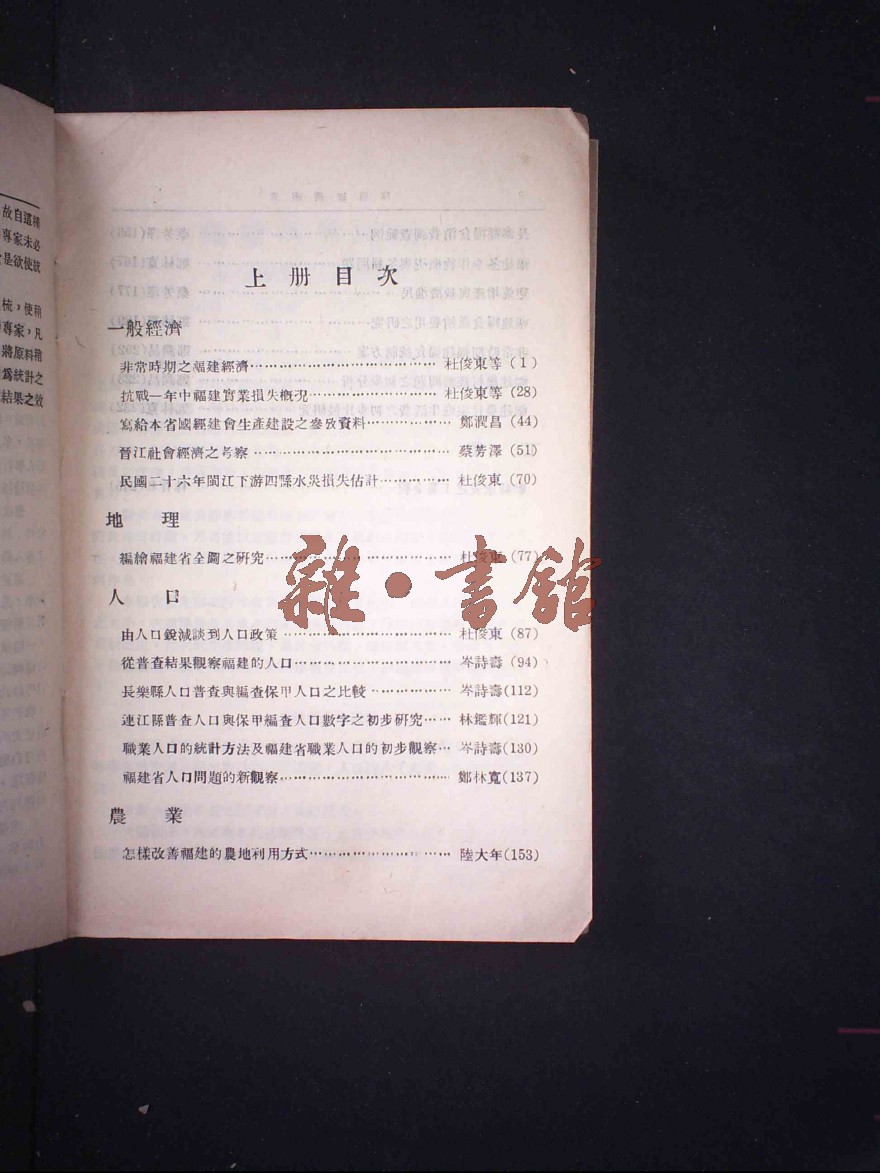 故自這種
專家未必
是欲使故
梳，使稍
專家，凡
將原料稍
爲統計之
結果之效
上册目次
一般經濟
非常時期之福建經濟……………………杜俊東等（1）
抗戰一年中福建實業損失概況………………杜俊東等（28）
寫給本省國經建會生產建設之參攷資料…………鄭潤昌（44）
晉江社會經濟之考察……………………蔡芳澤（51）
民國二十六年閩江下游四縣水災損失估計…………杜俊東（70）
地理
編繪福建省全圖之研究……………………杜俊東（77）
人口
由人口銳減談到人口政策…………………杜俊東（87）
從普查結果觀察福建的人口…………………岑詩壽（94）
長樂縣人口普查與編查保甲人口之比較…………岑詩壽（112）
連江縣普查人口與保甲編查人口數字之初步研究……林鑑輝（121）
職業人口的統計方法及福建省職業人口的初步觀察…岑詩壽（130）
福建省人口問題的新觀察……………………鄭林寬（137）
農業
怎樣改善福建的農地利用方式………………陸大年（153）
雜·書館